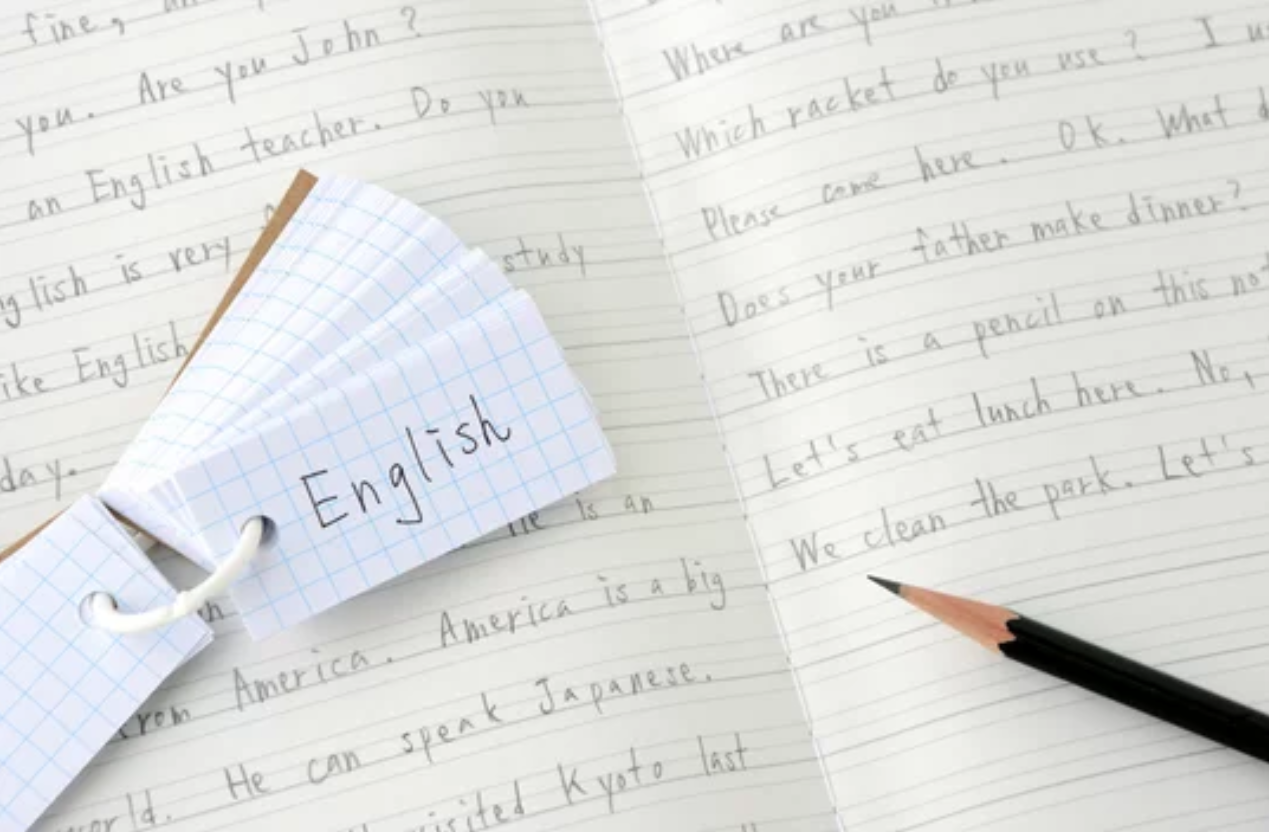 fine,
you. Are you John?
an English teacher. Do you
is very
study
English
day.
English
is an
America is a big
from America.
He can speak Japanese.
world.
visited Kyoto last
Where are you
Which racket do you use? I
Please come here. Ok. What
Does your father make dinner?
There is a pencil on this
Let's eat lunch here. No,
We clean the park. Let's